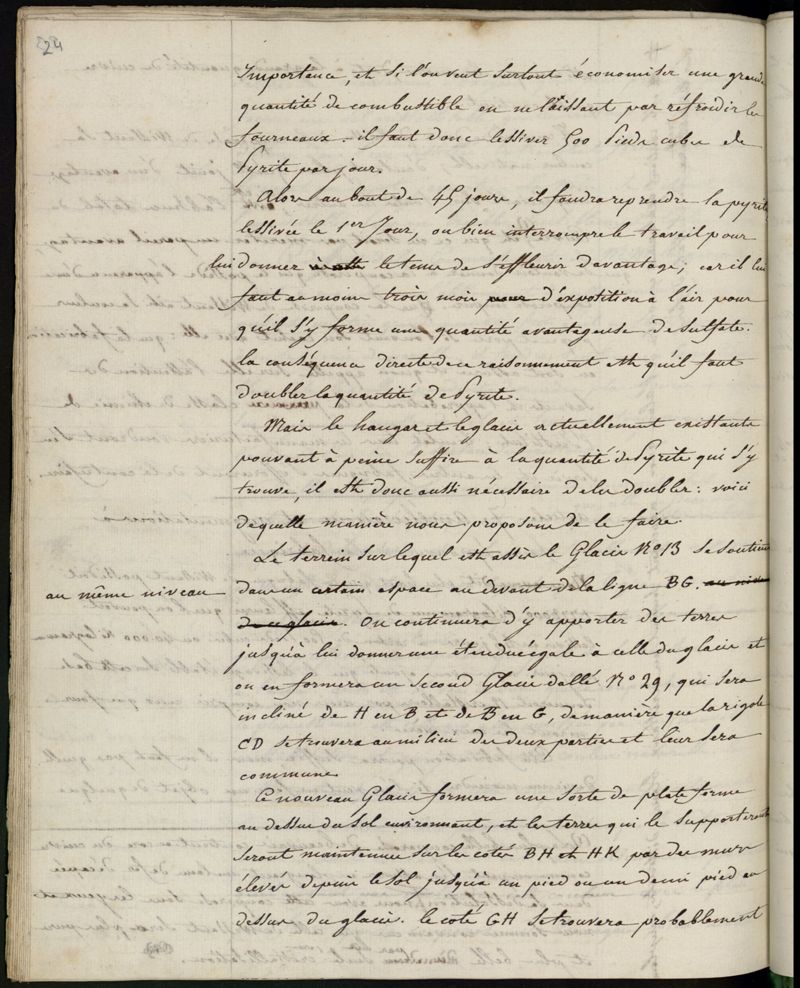 24
Importance, et si l'on veut surtout économiser une grande
quantité de combustible en ne laissant pas réfroidir les
fourneaux. il faut donc lessiver 500 Pieds cubes de
Pyrite par jour.
Alors au bout de 45 jours, il faudra reprendre la pyrite
lessivée le 1er Jour, ou bien interrompre le travail pour
lui donner le tems de s'effleurir davantage; car il lui
faut au moins trois mois pour d'exposition à l'air pour
qu'il s'y forme une quantité avantageuse de sulfate.
la conséquence directe de ce raisonnement est qu'il faut
doubler la quantité de Pyrite.
Mais le hangar et le glacis actuellement existants
pouvant à peine suffire à la quantité de Pyrite qui s'y
trouve, il est donc aussi nécessaire de les doubler: voici
de quelle manière nous proposons de le faire.
Le terrein sur lequel est assis le Glacis No 13 se soutient
au même niveau
dans un certain espace au devant de la ligne BG. au niveau
de ce glacis. On continuera d'y apporter des terres
jusqu'à lui donner une étendue égale à celle du glacis et
on en formera un second Glacis dallé No 29, qui sera
incliné de H en B et de B en G, de manière que la rigole
CD se trouvera au milieu des deux parties et leur sera
commune
Ce nouveau Glacis formera une sorte de plate forme
au dessus du sol environnant, et les terres qui le supporteront
seront maintenues sur les cotés BH et HK par des murs
élevés depuis le sol jusqu'à un pied ou un demi pied au
dessus du glacis. le coté GH se trouvera probablement